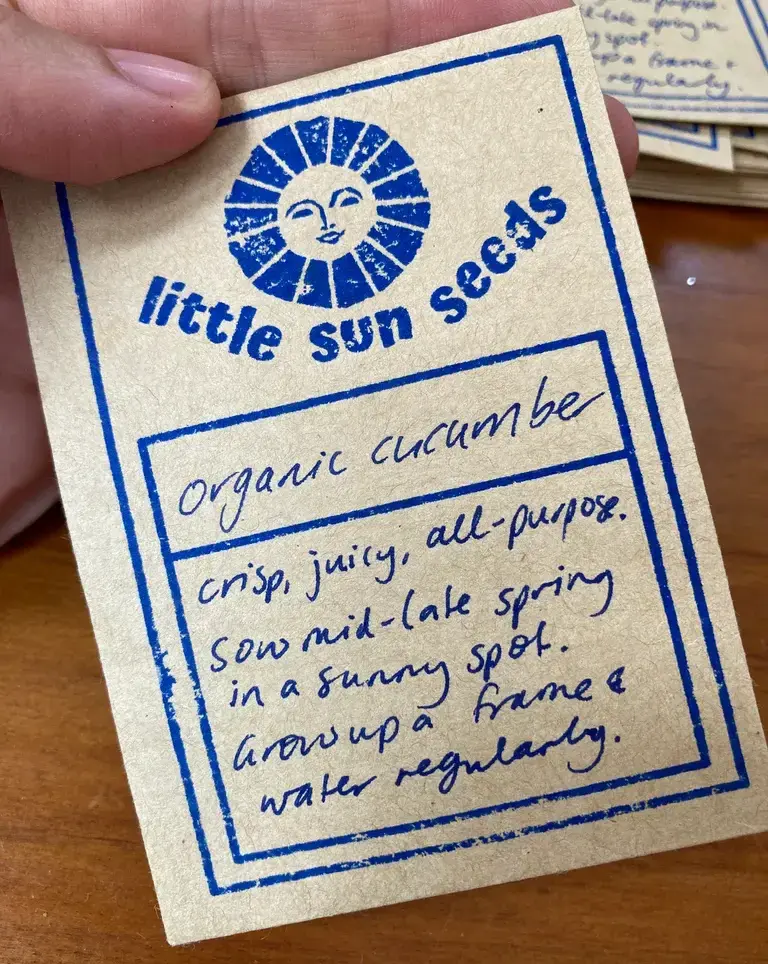 little sun seeds
organic cucumber
crisp, juicy, all-purpose.
Sow mid-late spring
in a sunny spot.
Grow up a frame &
water regularly.
late spring in
spot.
up a frame +
regularly.